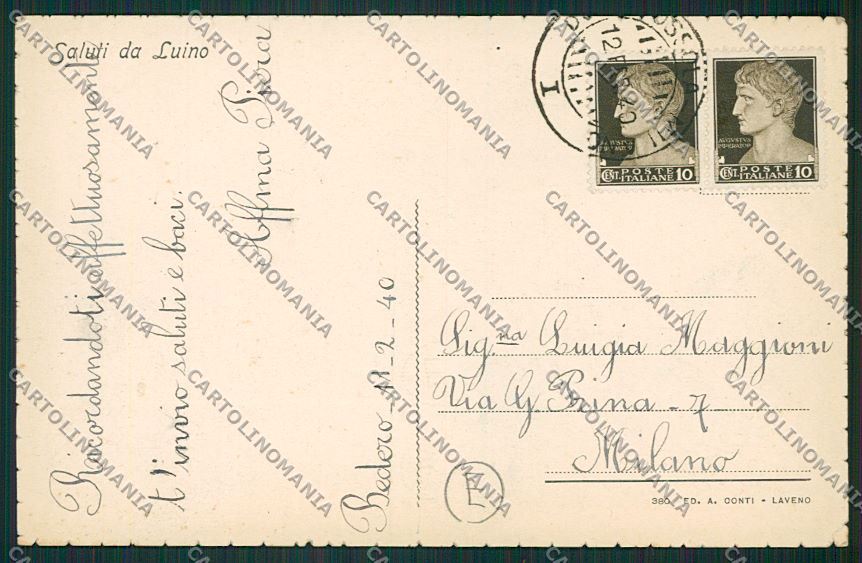 Saluti da Luino
Ricordandoti affettuosamente
t'invio saluti e baci.
Affma Piera
Bedero - 11-2-40
Sig.na Luigia Maggioni
Via G Prina - 7
Milano
E
380 ED. A. CONTI - LAVENO
I
12
40
AVGVSTVS
IMPERATOR
POSTE
ITALIANE
CENT. 10
AVGVSTVS
IMPERATOR
POSTE
ITALIANE
CENT. 10
CARTOLINOMANIA